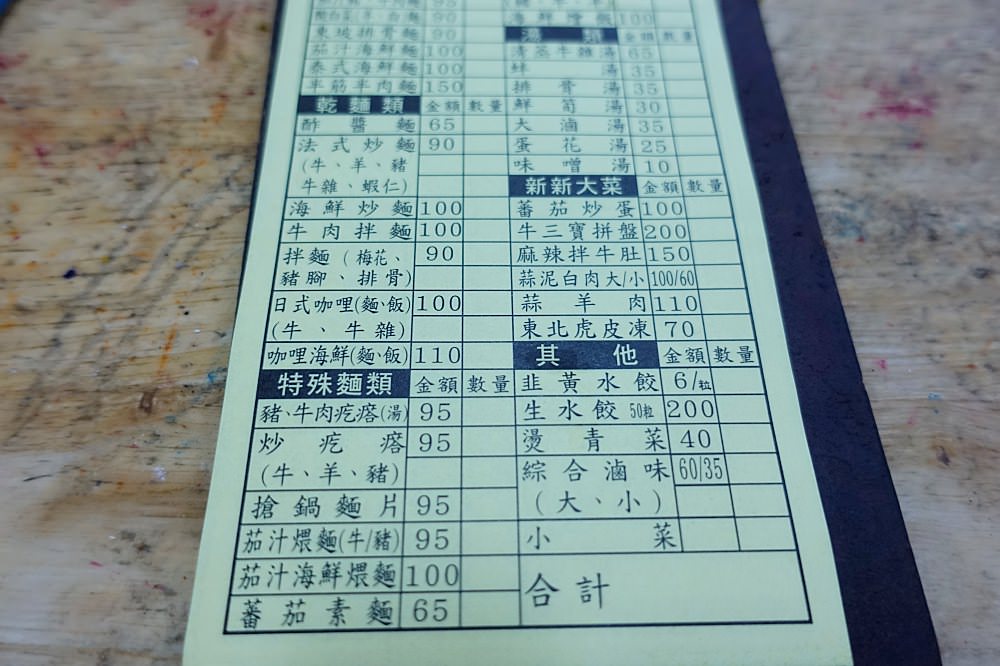 東坡排骨麵 90
茄汁海鮮麵 100
泰式海鮮麵 100
半筋半肉麵 150
乾麵類 金額 數量
酢醬麵 65
法式炒麵 90
(牛、羊、豬
牛雜、蝦仁)
海鮮炒麵 100
牛肉拌麵 100
拌麵(梅花、 90
豬腳、排骨)
日式咖哩(麵、飯) 100
(牛、牛雜)
咖哩海鮮(麵、飯) 110
特殊麵類 金額 數量
豬、牛肉疙瘩(湯) 95
炒疙瘩 95
(牛、羊、豬)
搶鍋麵片 95
茄汁煨麵(牛/豬) 95
茄汁海鮮煨麵 100
蕃茄素麵 65
海鮮燴飯 100
湯類 金額 數量
清蒸牛雜湯 65
蚌湯 35
排骨湯 35
鮮筍湯 30
大滷湯 35
蛋花湯 25
味噌湯 10
新新大菜 金額 數量
蕃茄炒蛋 100
牛三寶拼盤 200
麻辣拌牛肚 150
蒜泥白肉大/小 100/60
蒜羊肉 110
東北虎皮凍 70
其他 金額 數量
韭黃水餃 6/粒
生水餃 50粒 200
燙青菜 40
綜合滷味 60/35
(大、小)
小菜
合計